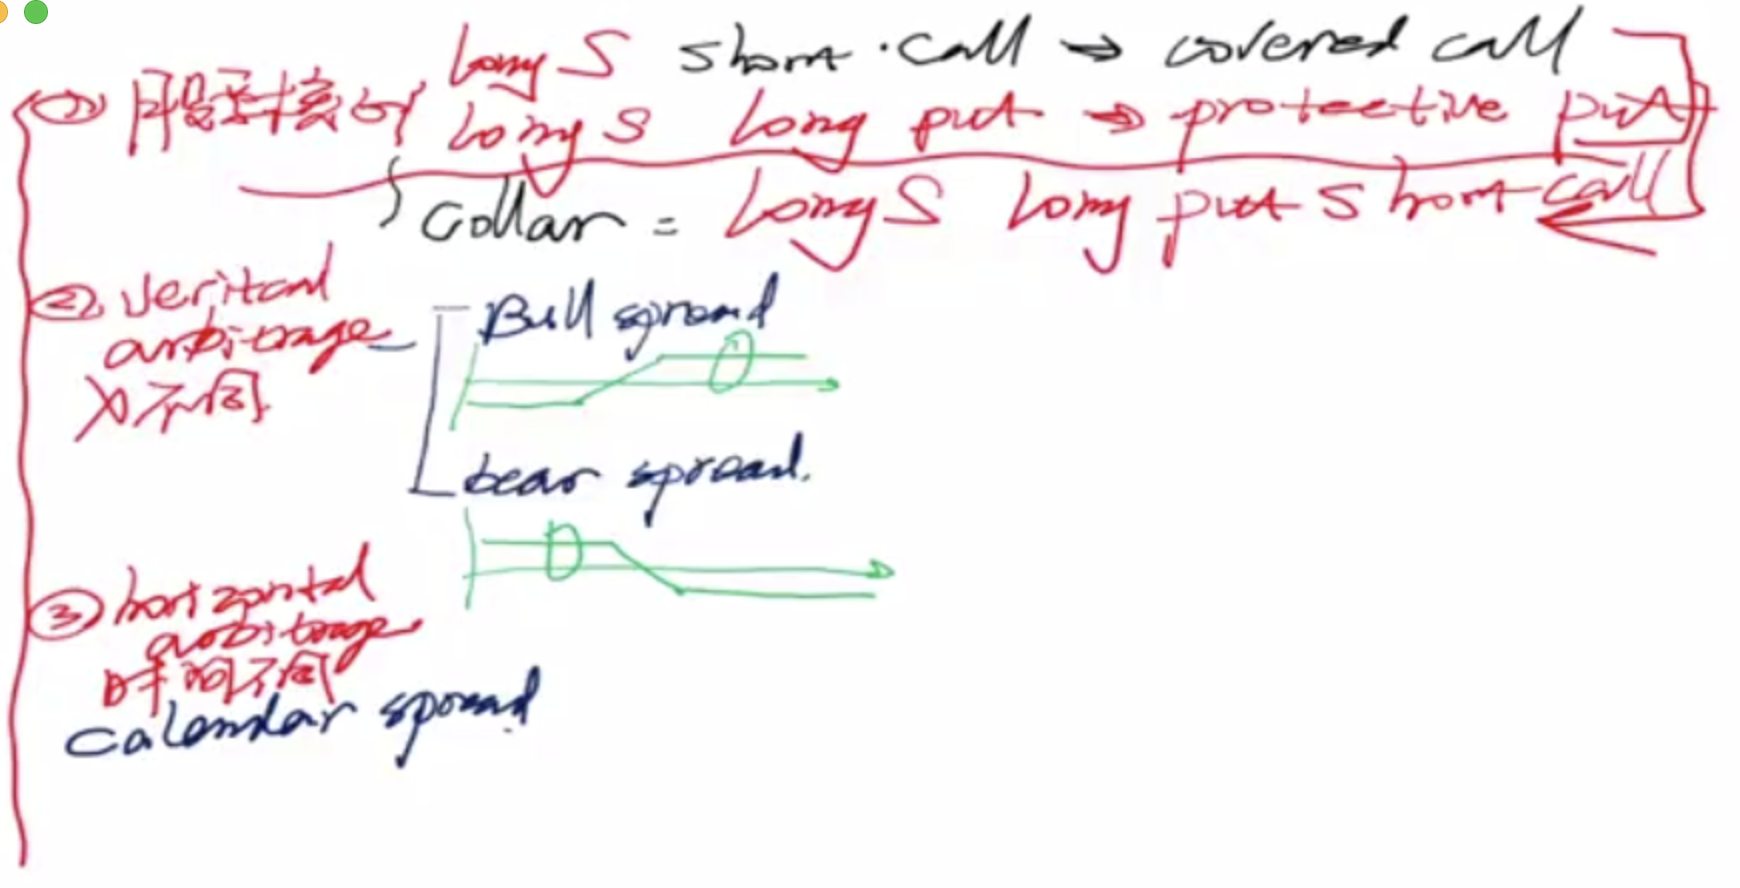 Long S short call → covered call
① 用股票搭的 Long S Long put → protective put
Collar = Long S Long put short call
② veritcal
arbitrage
X不同
Bull spread
bear spread.
③ horizontal
arbitrage
时间不同
calendar spread